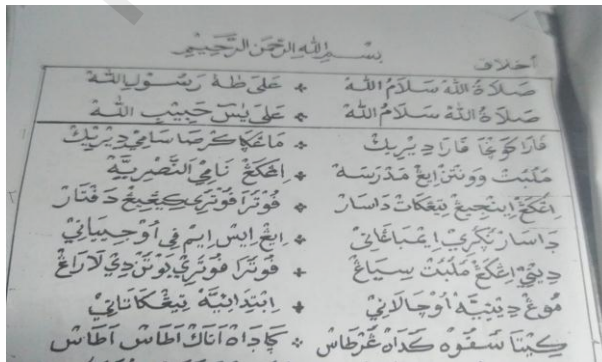 بِسْمِ اللهِ الرَّحْمٰنِ الرَّحِيْمِ
أخلاق
صَلَاةُ اللهْ سَلَامُ اللهْ ❖ عَلَى طٰهَ رَسُوْلِ اللهْ
صَلَاةُ اللهْ سَلَامُ اللهْ ❖ عَلَى يٰسٓ حَبِيْبِ اللهْ
فَارَا كَوْنْچَا فَارَا دَيْرَيْكْ ❖ مَاڠْكَا كَرْصَا سَامِي دَيْرَيْكْ
مَلْبَتْ وَوَنْتَنْ اِڠْ مَدْرَسَهْ ❖ اِڠْكَڠْ نَامِي النَّصْرِيَّةْ
اِڠْكَڠْ اِيْنْجِيْڠْ تِيڠْكَاتْ دَاسَارْ ❖ فُوْتْرَا فُوْتْرِي كِيْڠِيْڠْ دَفْتَارْ
دَاسَارْ نَكْرِي اِيْمْبَاڠَانَيْ ❖ اِيڠْ اِيسْ اِيمْ فَي اُوْجِيْبَانَيْ
دَيْنَيْ اِڠْكَڠْ مَلْبَتْ سِيَاڠْ ❖ فُوْتْرَا فُوْتْرِي بَوْتَنْ دِي لَارَاڠْ
مُوْڠْ دِيْنِيَّهْ اُوْچَالَانَيْ ❖ اِبْتِدَائِيَّهْ تِيڠْكَاتَانَيْ
كِيْتَا سَفُوْهْ كَدَاهْ غَرْطَاسْ ❖ كَاجَدَاهْ اَنَاكْ اَطَاسْ اَطَاسْ